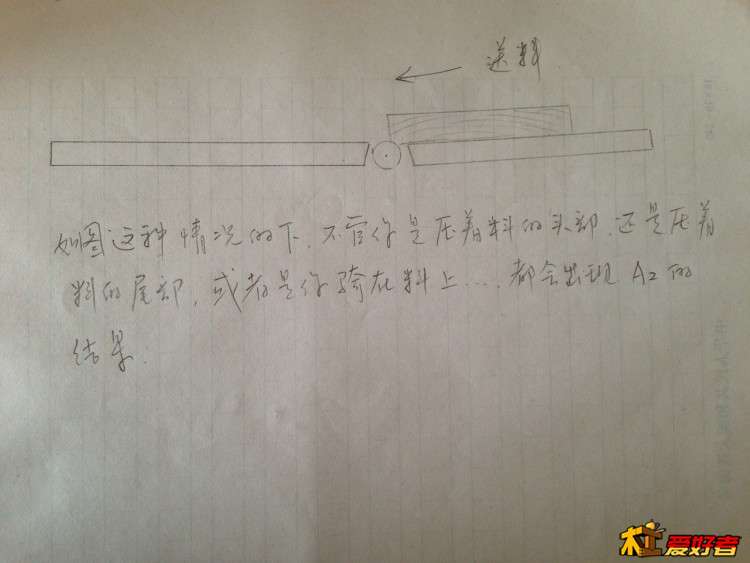 送料
如图这种情况的下,不管你是压着料的头部,还是压着
料的尾部,或者是你骑在料上....,都会出现A2的
结果.
木工爱好者